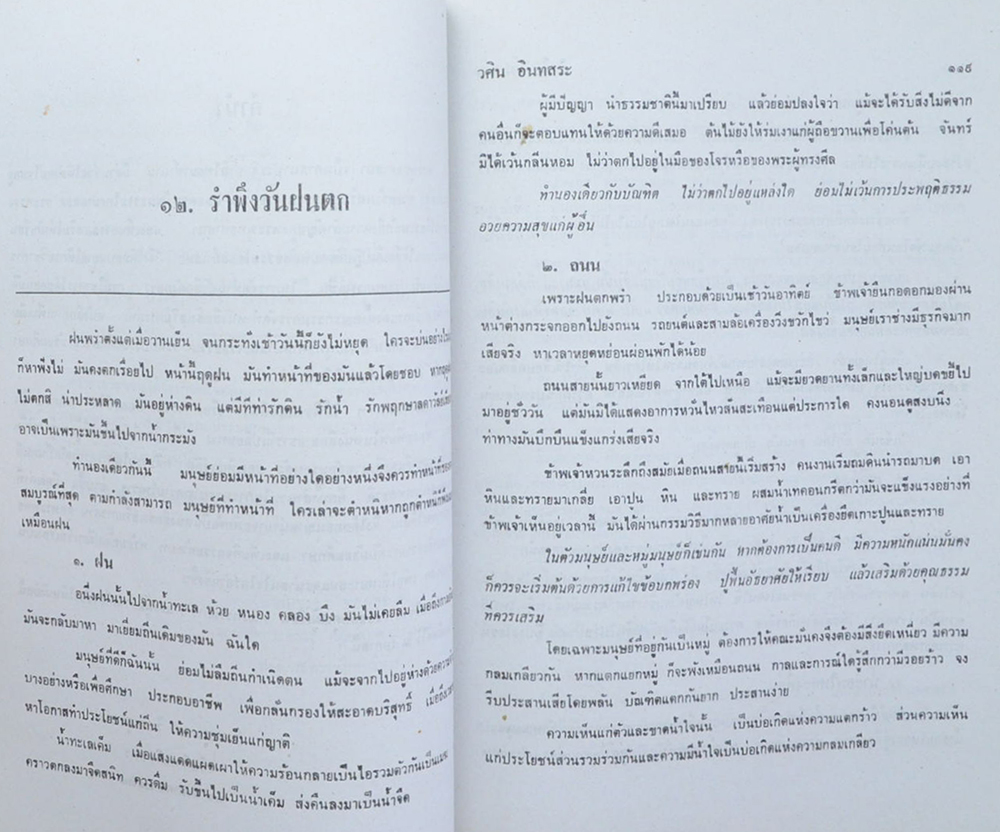 ๑๒. รำพึงวันฝนตก
ฝนพรำตั้งแต่เมื่อวานเย็น จนกระทั่งเช้าวันนี้ก็ยังไม่หยุด ใครจะบ่นอย่างไรมัน
ก็หาฟังไม่ มันคงตกเรื่อยไป หน้านี้ฤดูฝน มันทำหน้าที่ของมันแล้วโดยชอบ หาก
ไม่ตกสิ น่าประหลาด มันอยู่ห่างดิน แต่มีทีท่ารักดิน รักน้ำ รักพฤกษาลดาวัลย์
อาจเป็นเพราะมันขึ้นไปจากน้ำกระมัง
ทำนองเดียวกันนี้ มนุษย์ย่อมมีหน้าที่อย่างใดอย่างหนึ่งจึงควรทำหน้าที่
สมบูรณ์ที่สุด ตามกำลังสามารถ มนุษย์ที่ทำหน้าที่ ใครเล่าจะตำหนิหากถูกตำหนิก็
เหมือนฝน
๑. ฝน
อนึ่งฝนนั้นไปจากน้ำทะเล ห้วย หนอง คลอง บึง มันไม่เคยลืม เมื่อถึง
มันจะกลับมาหา มาเยี่ยมถิ่นเดิมของมัน ฉันใด
มนุษย์ที่ดีก็ฉันนั้น ย่อมไม่ลืมถิ่นกำเนิดตน แม้จะจากไปอยู่ห่างด้วย
บางอย่างหรือเพื่อศึกษา ประกอบอาชีพ เพื่อกลั่นกรองให้สะอาดบริสุทธิ์ เมื่อถึง
หาโอกาสทำประโยชน์แก่ถิ่น ให้ความชุ่มเย็นแก่ญาติ
น้ำทะเลเค็ม เมื่อแสงแดดแผดเผาให้ความร้อนกลายเป็นไอรวมตัวกันเป็นเมฆ
คราวตกลงมาจืดสนิท ควรดื่ม รับขึ้นไปเป็นน้ำเค็ม ส่งคืนลงมาเป็นน้ำจืด
วศิน อินทสระ ๑๑๙
ผู้มีปัญญา นำธรรมชาตินี้มาเปรียบ แล้วย่อมปลงใจว่า แม้จะได้รับสิ่งไม่ดีจาก
คนอื่นก็จะตอบแทนให้ด้วยความดีเสมอ ต้นไม้ยังให้ร่มเงาแก่ผู้ถือขวานเพื่อโค่นต้น จันทร์
มิได้เว้นกลิ่นหอม ไม่ว่าตกไปอยู่ในมือของโจรหรือของพระผู้ทรงศีล
ทำนองเดียวกับบัณฑิต ไม่ว่าตกไปอยู่แหล่งใด ย่อมไม่เว้นการประพฤติธรรม
อวยความสุขแก่ผู้อื่น
๒. ถนน
เพราะฝนตกพรำ ประกอบด้วยเป็นเช้าวันอาทิตย์ ข้าพเจ้ายืนกอดอกมองผ่าน
หน้าต่างกระจกออกไปยังถนน รถยนต์และสามล้อเครื่องวิ่งขวักไขว่ มนุษย์เราช่างมีธุรกิจมาก
เสียจริง หาเวลาหยุดหย่อนผ่อนพักได้น้อย
ถนนสายนั้นยาวเหยียด จากใต้ไปเหนือ แม้จะมียวดยานทั้งเล็กและใหญ่บดขยี้ไป
มาอยู่ชั่ววัน แต่มันมิได้แสดงอาการหวั่นไหวสั่นสะเทือนแต่ประการใด คงนอนดูสงบนิ่ง
ท่าทางมันบึกบึนแข็งแกร่งเสียจริง
ข้าพเจ้าหวนระลึกถึงสมัยเมื่อถนนสายนี้เริ่มสร้าง คนงานเริ่มถมดินนำรถมาบด เอา
หินและทรายมาเกลี่ย เอาปูน หิน และทราย ผสมน้ำเทคอนกรีตกว่ามันจะแข็งแรงอย่างที่
ข้าพเจ้าเห็นอยู่เวลานี้ มันได้ผ่านกรรมวิธีมากหลายอาศัยน้ำเป็นเครื่องยึดเกาะปูนและทราย
ในตัวมนุษย์และหมู่มนุษย์ก็เช่นกัน หากต้องการเป็นคนดี มีความหนักแน่นมั่นคง
ก็ควรจะเริ่มต้นด้วยการแก้ไขข้อบกพร่อง ปูพื้นอัธยาศัยให้เรียบ แล้วเสริมด้วยคุณธรรม
ที่ควรเสริม
โดยเฉพาะมนุษย์ที่อยู่กันเป็นหมู่ ต้องการให้คณะมั่นคงจึงต้องมีสิ่งยึดเหนี่ยว มีความ
กลมเกลียวกัน หากแตกแยกหมู่ ก็จะพังเหมือนถนน กาลและการณ์ใดรู้สึกว่ามีรอยร้าว จง
รีบประสานเสียโดยพลัน บัณฑิตแตกกันยาก ประสานง่าย
ความเห็นแก่ตัวและขาดน้ำใจนั้น เป็นบ่อเกิดแห่งความแตกร้าว ส่วนความเห็น
แก่ประโยชน์ส่วนรวมร่วมกันและความมีน้ำใจเป็นบ่อเกิดแห่งความกลมเกลียว